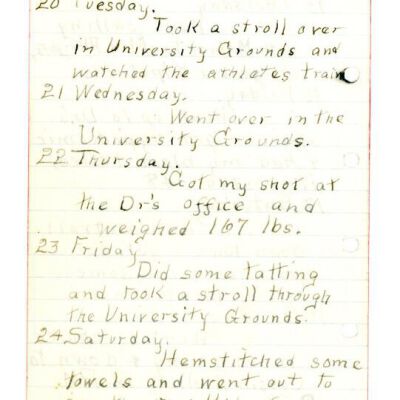 20 Tuesday.
Took a stroll over
in University Grounds and
watched the athletes train
21 Wednesday.
Went over in the
University Grounds.
22 Thursday.
Got my shot at
the Dr's office and
weighed 167 lbs.
23 Friday
Did some tatting
and took a stroll through
the University Grounds.
24 Saturday.
Hemstitched some
towels and went out to